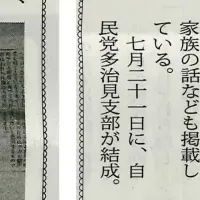 家族の話なども掲載し
ている。
七月二十一日に、自
民党多治見支部が結成。